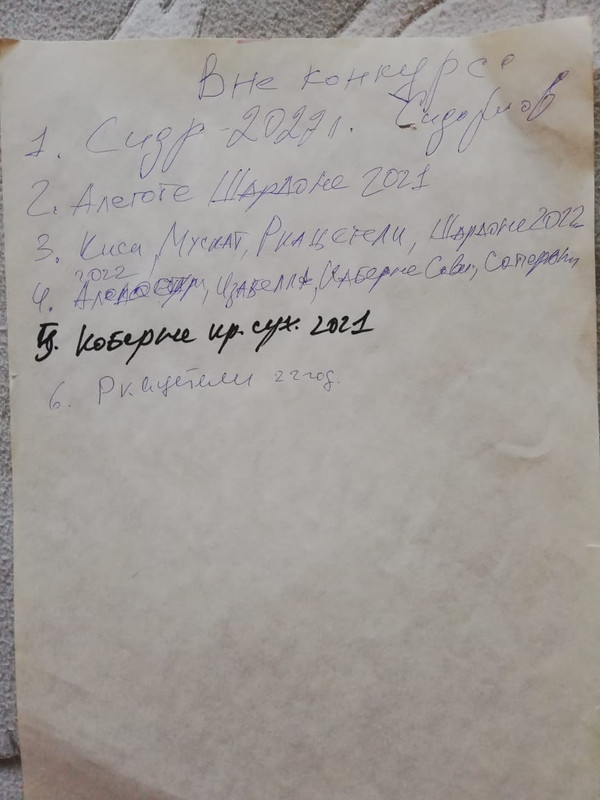 Вне конкурса
1. Сидр - 2022 г. Сидорков
2. Алеготе Шардоне 2021
3. Киси, Мускат, Ркацетели, Шардоне 2022
2022
4. Изабелла, Каберне Сов., Саперави
5. Коберне кр. сух. 2021
6. Ркацетели 22 год.